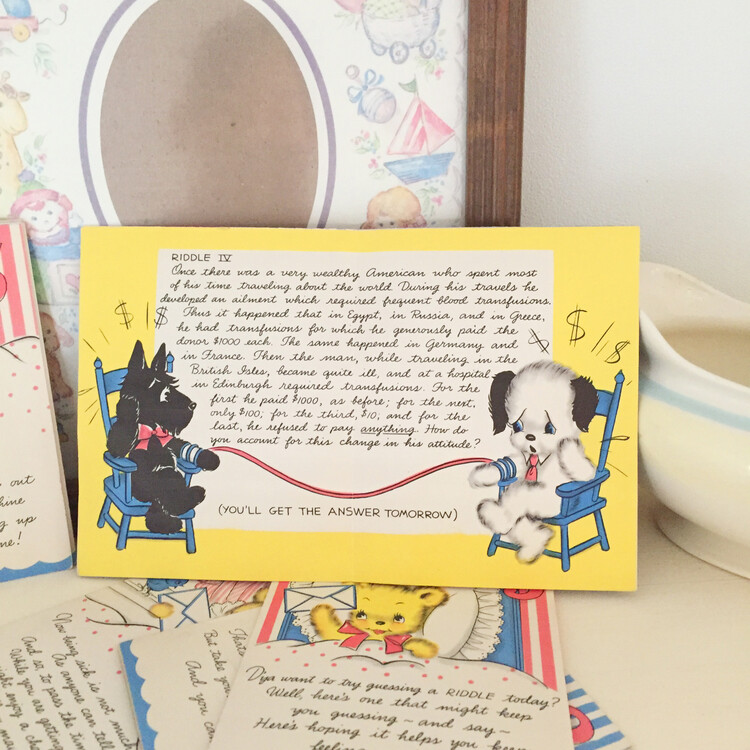 RIDDLE IV
Once there was a very wealthy American who spent most
of his time traveling about the world. During his travels he
developed an ailment which required frequent blood transfusions.
Thus it happened that in Egypt, in Russia, and in Greece,
he had transfusions for which he generously paid the
donor $1000 each. The same happened in Germany and
in France. Then the man, while traveling in the
British Isles, became quite ill, and at a hospital
in Edinburgh required transfusions. For the
first he paid $1000, as before; for the next,
only $100; for the third, $10; and for the
last, he refused to pay anything. How do
you account for this change in his attitude?
(YOU'LL GET THE ANSWER TOMORROW)
$ $
$ $ $
out
hine
g up
me!
Now being sick is not much
As anyone can tell
And so to pass the tim
While you are getting
might enjoy a
Thats
But take you
And you can
D'ya want to try guessing a RIDDLE today?
Well, here's one that might keep
you guessing - and say -
Here's hoping it helps you keep
feeling